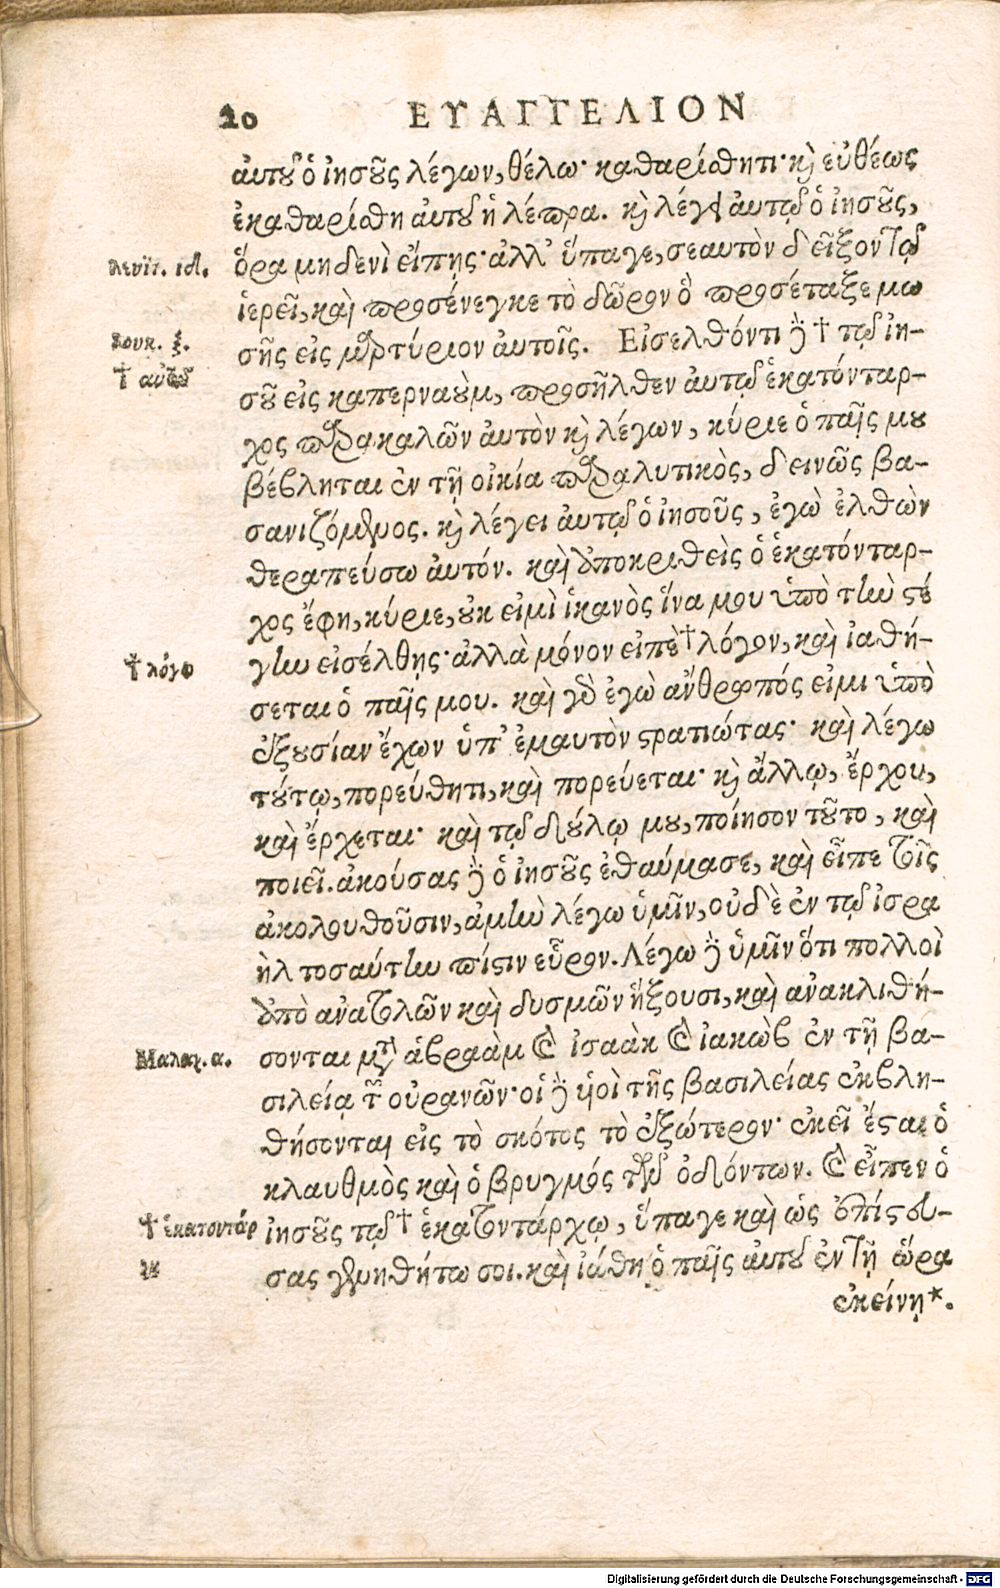 20 ΕΥΑΓΓΕΛΙΟΝ
αὐτοῦ ὁ ἰησοῦς λέγων, θέλω· καθαρίσθητι· καὶ εὐθέως
ἐκαθαρίσθη αὐτοῦ ἡ λέπρα. καὶ λέγει αὐτῷ ὁ ἰησοῦς,
Λευϊτ. ιδ. ὅρα μηδενὶ εἴπῃς· ἀλλ' ὕπαγε, σεαυτὸν δεῖξον τῷ
ἱερεῖ, καὶ προσένεγκε τὸ δῶρον ὃ προσέταξε μω
Λουκ. ζ. σῆς εἰς μαρτύριον αὐτοῖς. Εἰσελθόντι δὲ † τῷ ἰη-
† αὐτῷ σοῦ εἰς καπερναοὺμ, προσῆλθεν αὐτῷ ἑκατόνταρ-
χος παρακαλῶν αὐτὸν καὶ λέγων, κύριε ὁ παῖς μου
βέβληται ἐν τῇ οἰκίᾳ παραλυτικὸς, δεινῶς βα-
σανιζόμενος. καὶ λέγει αὐτῷ ὁ ἰησοῦς, ἐγὼ ἐλθὼν
θεραπεύσω αὐτόν. καὶ ἀποκριθεὶς ὁ ἑκατόνταρ-
χος ἔφη, κύριε, οὐκ εἰμὶ ἱκανὸς ἵνα μου ὑπὸ τὴν στέ
† λόγῳ γην εἰσέλθῃς· ἀλλὰ μόνον εἰπὲ † λόγον, καὶ ἰαθή-
σεται ὁ παῖς μου. καὶ γὰρ ἐγὼ ἄνθρωπός εἰμι ὑπὸ
ἐξουσίαν ἔχων ὑπ' ἐμαυτὸν στρατιώτας· καὶ λέγω
τούτῳ, πορεύθητι, καὶ πορεύεται· καὶ ἄλλῳ, ἔρχου,
καὶ ἔρχεται· καὶ τῷ δούλῳ μου, ποίησον τοῦτο, καὶ
ποιεῖ. ἀκούσας δὲ ὁ ἰησοῦς ἐθαύμασε, καὶ εἶπε τοῖς
ἀκολουθοῦσιν, ἀμὴν λέγω ὑμῖν, οὐδὲ ἐν τῷ ἰσρα
ὴλ τοσαύτην πίστιν εὗρον. Λέγω δὲ ὑμῖν ὅτι πολλοὶ
ἀπὸ ἀνατολῶν καὶ δυσμῶν ἥξουσι, καὶ ἀνακλιθή-
Μαλαχ. α. σονται μετὰ ἀβραὰμ καὶ ἰσαὰκ καὶ ἰακὼβ ἐν τῇ βα-
σιλείᾳ τῶν οὐρανῶν· οἱ δὲ υἱοὶ τῆς βασιλείας ἐκβλη-
θήσονται εἰς τὸ σκότος τὸ ἐξώτερον· ἐκεῖ ἔσται ὁ
κλαυθμὸς καὶ ὁ βρυγμός τῶν ὀδόντων. καὶ εἶπεν ὁ
† ἑκατοντάρ ἰησοῦς τῷ † ἑκατοντάρχῳ, ὕπαγε καὶ ὡς ἐπίστευ-
χῃ σας γενηθήτω σοι. καὶ ἰάθη ὁ παῖς αὐτοῦ ἐν τῇ ὥρᾳ
ἐκείνῃ*.
Digitalisierung gefördert durch die Deutsche Forschungsgemeinschaft - DFG